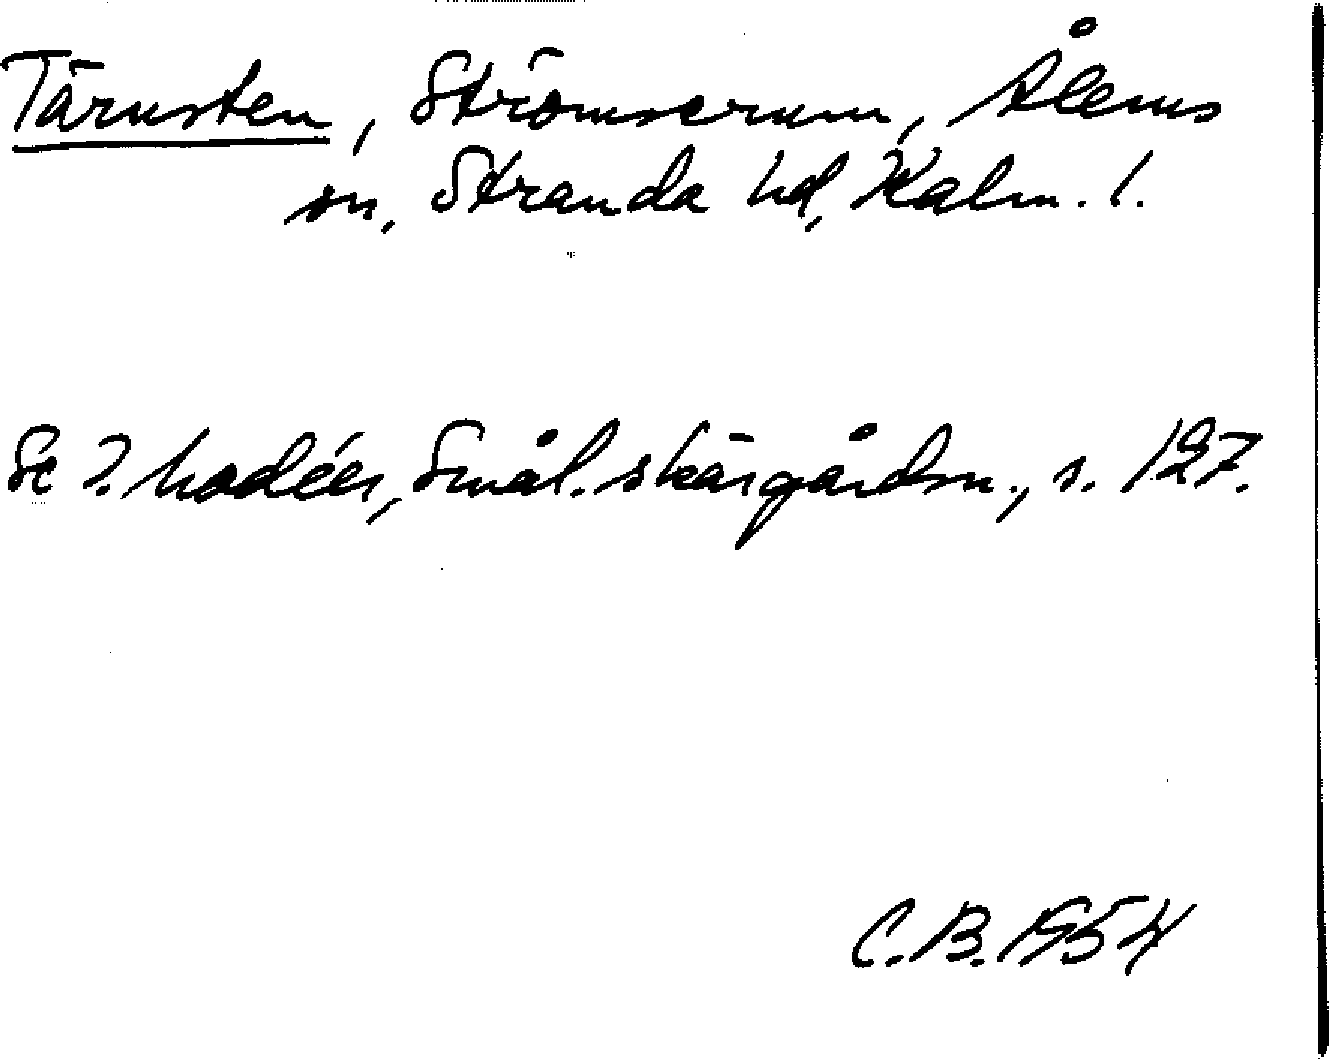 Tärnsten, Strömserum, Ålems
sn, Stranda hd, Kalm. l.
Se Modéer, Smål. skärgårdsn., s. 127.
C.B. 1954